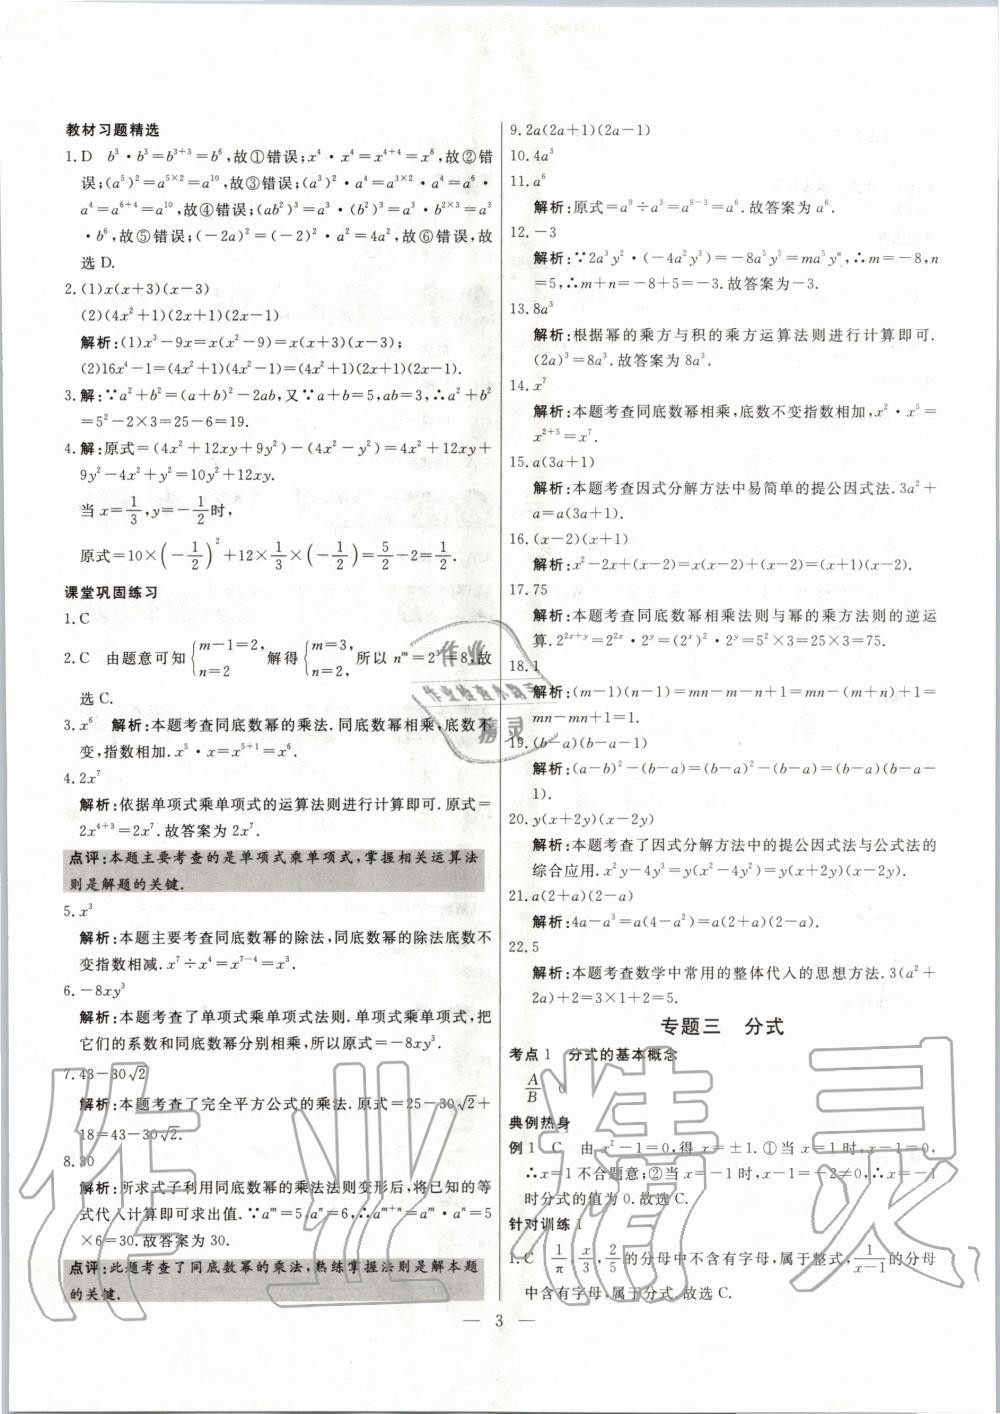 教材习题精选
1.D　b³·b³=b³⁺³=b⁶,故①错误;x⁴·x⁴=x⁴⁺⁴=x⁸,故②错
误;(a⁵)²=a⁵ˣ²=a¹⁰,故③错误;(a³)²·a⁴=a³ˣ²·a⁴=a⁶·
a⁴=a⁶⁺⁴=a¹⁰,故④错误;(ab²)³=a³·(b²)³=a³·b²ˣ³=a³
·b⁶,故⑤错误;(－2a)²=(－2)²·a²=4a²,故⑥错误,故
选 D.
2.(1)x(x+3)(x－3)
(2)(4x²+1)(2x+1)(2x－1)
解析:(1)x³－9x=x(x²－9)=x(x+3)(x－3);
(2)16x⁴－1=(4x²+1)(4x²－1)=(4x²+1)(2x+1)(2x－1).
3.解:∵a²+b²=(a+b)²－2ab,又∵a+b=5,ab=3,∴a²+b²
=5²－2×3=25－6=19.
4.解:原式=(4x²+12xy+9y²)－(4x²－y²)=4x²+12xy+
9y²－4x²+y²=10y²+12xy.
当 x=1/3,y=－1/2时,
原式=10×(－1/2)²+12×1/3×(－1/2)=5/2－2=1/2.
课堂巩固练习
1.C
2.C　由题意可知{m－1=2, n=2　解得{m=3, n=2,　所以 nᵐ=2³=8,故
选 C.
3.x⁶　解析:本题考查同底数幂的乘法.同底数幂相乘,底数不
变,指数相加.x⁵·x=x⁵⁺¹=x⁶.
4.2x⁷
解析:依据单项式乘单项式的运算法则进行计算即可.原式=
2x⁴⁺³=2x⁷.故答案为 2x⁷.
点评:本题主要考查的是单项式乘单项式,掌握相关运算法
则是解题的关键.
5.x³
解析:本题主要考查同底数幂的除法,同底数幂的除法底数不
变指数相减.x⁷÷x⁴=x⁷⁻⁴=x³.
6.－8xy³
解析:本题考查了单项式乘单项式法则.单项式乘单项式,把
它们的系数和同底数幂分别相乘,所以原式=－8xy³.
7.43－30√2
解析:本题考查了完全平方公式的乘法.原式=25－30√2+
18=43－30√2.
8.30
解析:所求式子利用同底数幂的乘法法则变形后,将已知的等
式代入计算即可求出值.∵aᵐ=5,aⁿ=6,∴aᵐ⁺ⁿ=aᵐ·aⁿ=5
×6=30.故答案为 30.
点评:此题考查了同底数幂的乘法,熟练掌握法则是解本题
的关键.
9.2a(2a+1)(2a－1)
10.4a³
11.a⁶
解析:原式=a⁹÷a³=a⁹⁻³=a⁶.故答案为 a⁶.
12.－3
解析:∵2a³y²·(－4a²y³)=－8a⁵y⁵=ma⁵yⁿ,∴m=－8,n
=5,∴m+n=－8+5=－3.故答案为－3.
13.8a³
解析:根据幂的乘方与积的乘方运算法则进行计算即可.
(2a)³=8a³.故答案为 8a³.
14.x⁷
解析:本题考查同底数幂相乘,底数不变指数相加,x²·x⁵=
x²⁺⁵=x⁷.
15.a(3a+1)
解析:本题考查因式分解方法中易简单的提公因式法.3a²+
a=a(3a+1).
16.(x－2)(x+1)
解析:x²－2x+(x－2)=x(x－2)+(x－2)=(x+1)(x－2).
17.75
解析:本题考查同底数幂相乘法则与幂的乘方法则的逆运
算.2²ˣ⁺ʸ=2²ˣ·2ʸ=(2ˣ)²·2ʸ=5²×3=25×3=75.
18.1
解析:(m－1)(n－1)=mn－m－n+1=mn－(m+n)+1=
mn－mn+1=1.
19.(b－a)(b－a－1)
解析:(a－b)²－(b－a)=(b－a)²－(b－a)=(b－a)(b－a－
1).
20.y(x+2y)(x－2y)
解析:本题考查了因式分解方法中的提公因式法与公式法的
综合应用.x²y－4y³=y(x²－4y²)=y(x+2y)(x－2y).
21.a(2+a)(2－a)
解析:4a－a³=a(4－a²)=a(2+a)(2－a).
22.5
解析:本题考查数学中常用的整体代人的思想方法.3(a²+
2a)+2=3×1+2=5.
专题三　分式
考点 1　分式的基本概念
A/B　0
典例热身
例 1　C　由 x²－1=0,得 x=±1.①当 x=1 时,x－1=0,
∴x=1 不合题意;②当 x=－1 时,x－1=－2≠0,∴x=－1
时分式的值为 0.故选 C.
针对训练 1
1.C　1/π,x/3,2/5的分母中不含有字母,属于整式,1/(x－1)的分母
中含有字母,属于分式.故选 C.
— 3 —
作业
作业检查小帮手
精灵
作业精灵